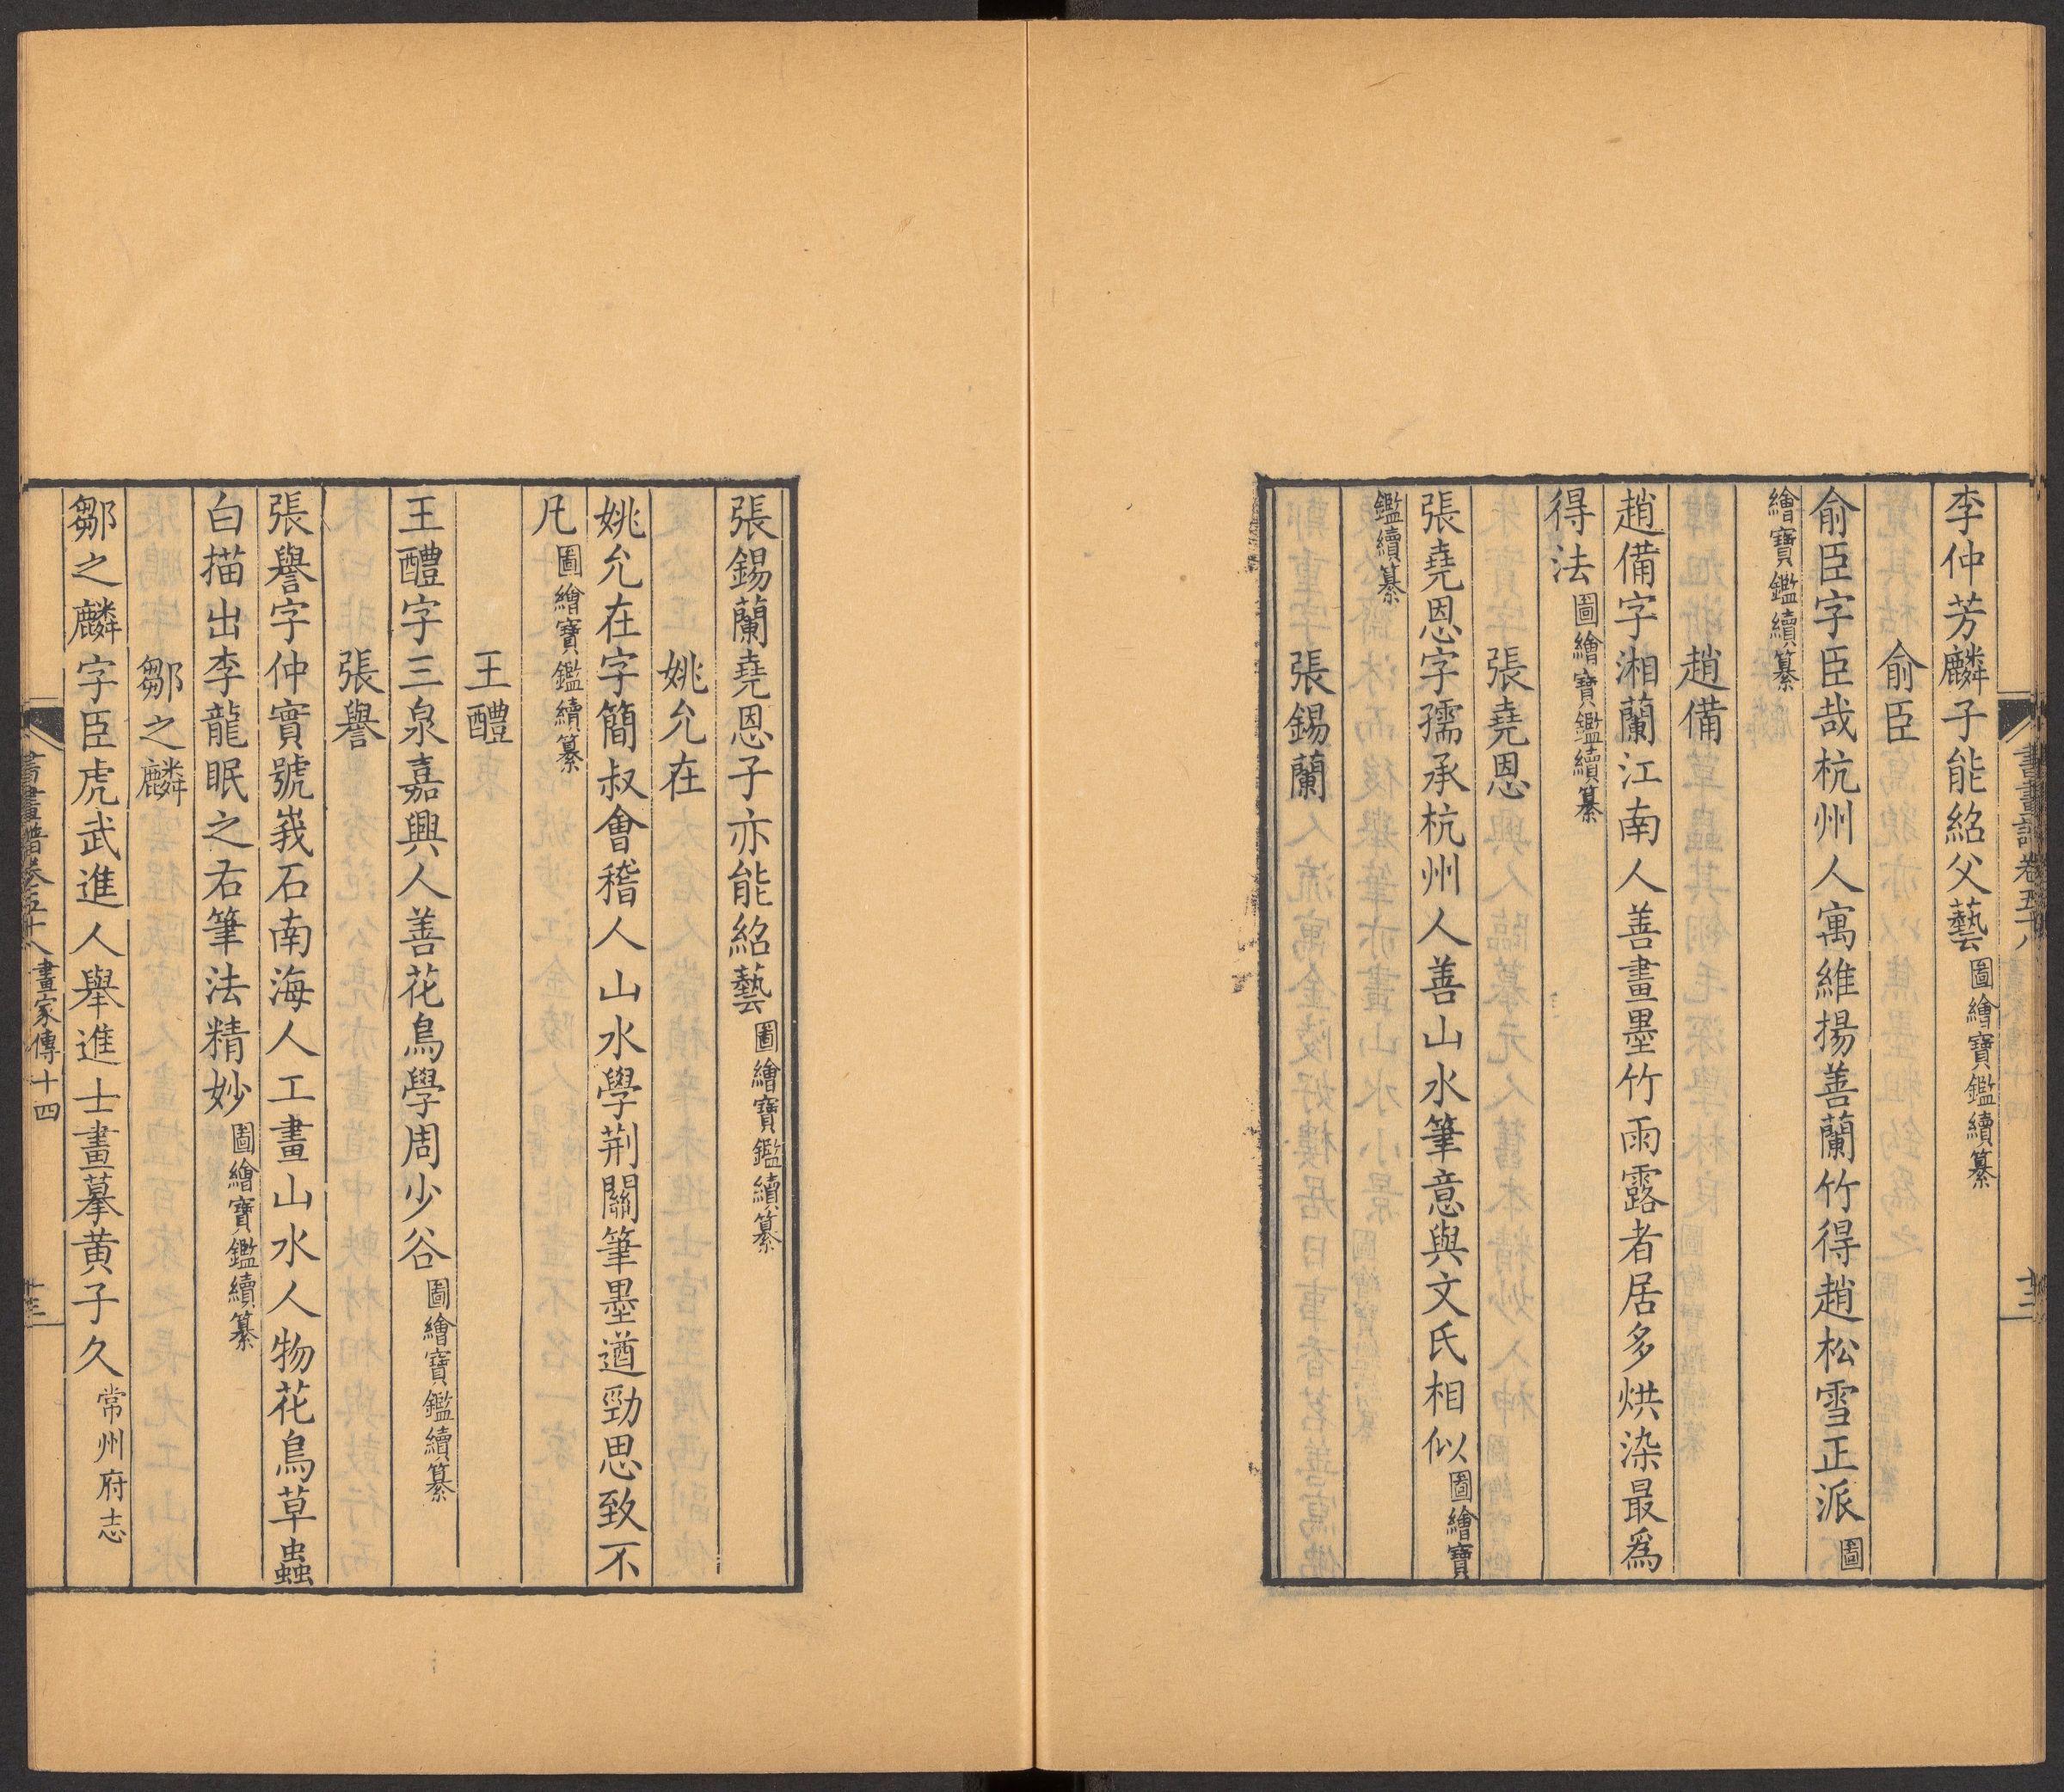 李仲芳麟子能紹父藝圖繪寶鑑續纂
俞臣
俞臣字臣哉杭州人寓維揚善蘭竹得趙松雪正派圖
繪寶鑑續纂
趙備
趙備字湘蘭江南人善畫墨竹雨露者居多烘染最爲
得法圖繪寶鑑續纂
張堯恩
張堯恩字孺承杭州人善山水筆意與文氏相似圖繪寶
鑑續纂
張錫蘭
張錫蘭堯恩子亦能紹藝圖繪寶鑑續纂
姚允在
姚允在字簡叔會稽人山水學荆關筆墨遒勁思致不
凡圖繪寶鑑續纂
王醴
王醴字三泉嘉興人善花鳥學周少谷圖繪寶鑑續纂
張譽
張譽字仲實號峩石南海人工畫山水人物花鳥草蟲
白描出李龍眠之右筆法精妙圖繪寶鑑續纂
鄒之麟
鄒之麟字臣虎武進人舉進士畫摹黄子久常州府志
書畫譜卷五十八畫家傳十四